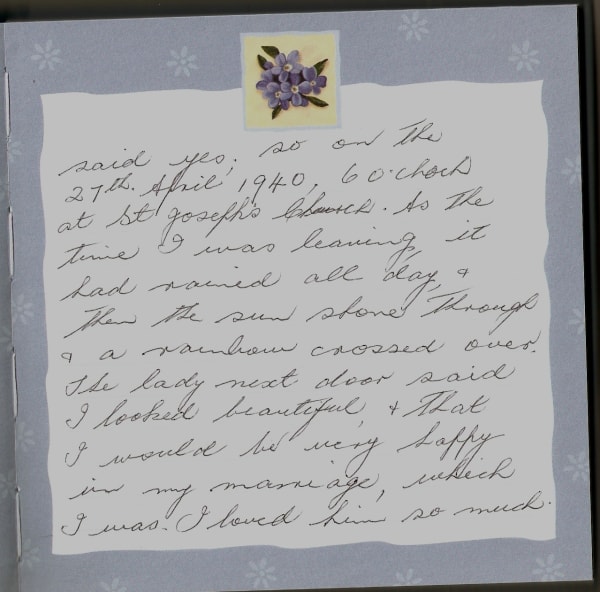 said yes; so on the
27th. April 1940, 6 O'clock
at St Joseph's Church. As the
time I was leaving, it
had rained all day, &
then the sun shone through
& a rainbow crossed over.
The lady next door said
I looked beautiful, & that
I would be very happy
in my marriage, which
I was. I loved him so much.